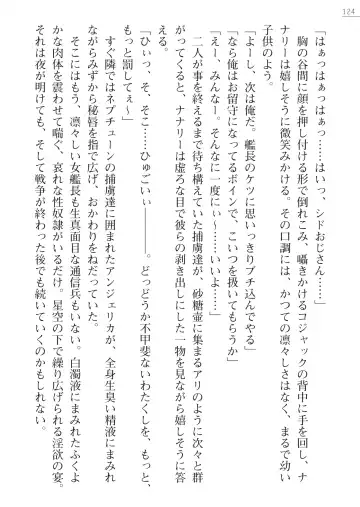 124
「はぁっはぁっはぁっ……はいっ、シドおじさん……」
胸の谷間に顔を押し付ける形で倒れこみ、囁きかけるコジャックの背中に手を回すと、ナ
ナリーは嬉しそうに微笑みかける。その口調には、かつての凛々しさはなく、まるで幼い
子供のよう。
「よーし、次は俺だ。艦長のケツに思いっきりブチ込んでやる」
「なら俺はお留守になってるボインで、こいつを扱いてもらうか」
「えー、みんなぁー。そんなに一度にぃ～……いいよ……」
二人が事を終えるまで待ち構えていた捕虜達が、砂糖壺に集まるアリのように次々と群
がってくると、ナナリーは虚ろな目で彼らの剥き出しにした一物を見ながら嬉しそうに答
える。
「ひぃっ、そ、そこ……ひゅごいぃ――――――。どっどうか不甲斐ないわたくしを、もっと、
もっと罰してぇ～」
すぐ隣ではネプチューンの捕虜達に囲まれたアンジェリカが、全身生臭い精液にまみれ
ながらみずから秘唇を指で広げ、おかわりをねだっていた。
そこにはもう、凛々しい女艦長も生真面目な通信兵もいない。白濁液にまみれたふくよ
かな肉体を震わせて喘ぐ、哀れな性奴隷がいるだけ。星空の下で繰り広げられる淫欲の宴。
それは夜が明けても、そして戦争が終わった後でも続いていくのかもしれない。